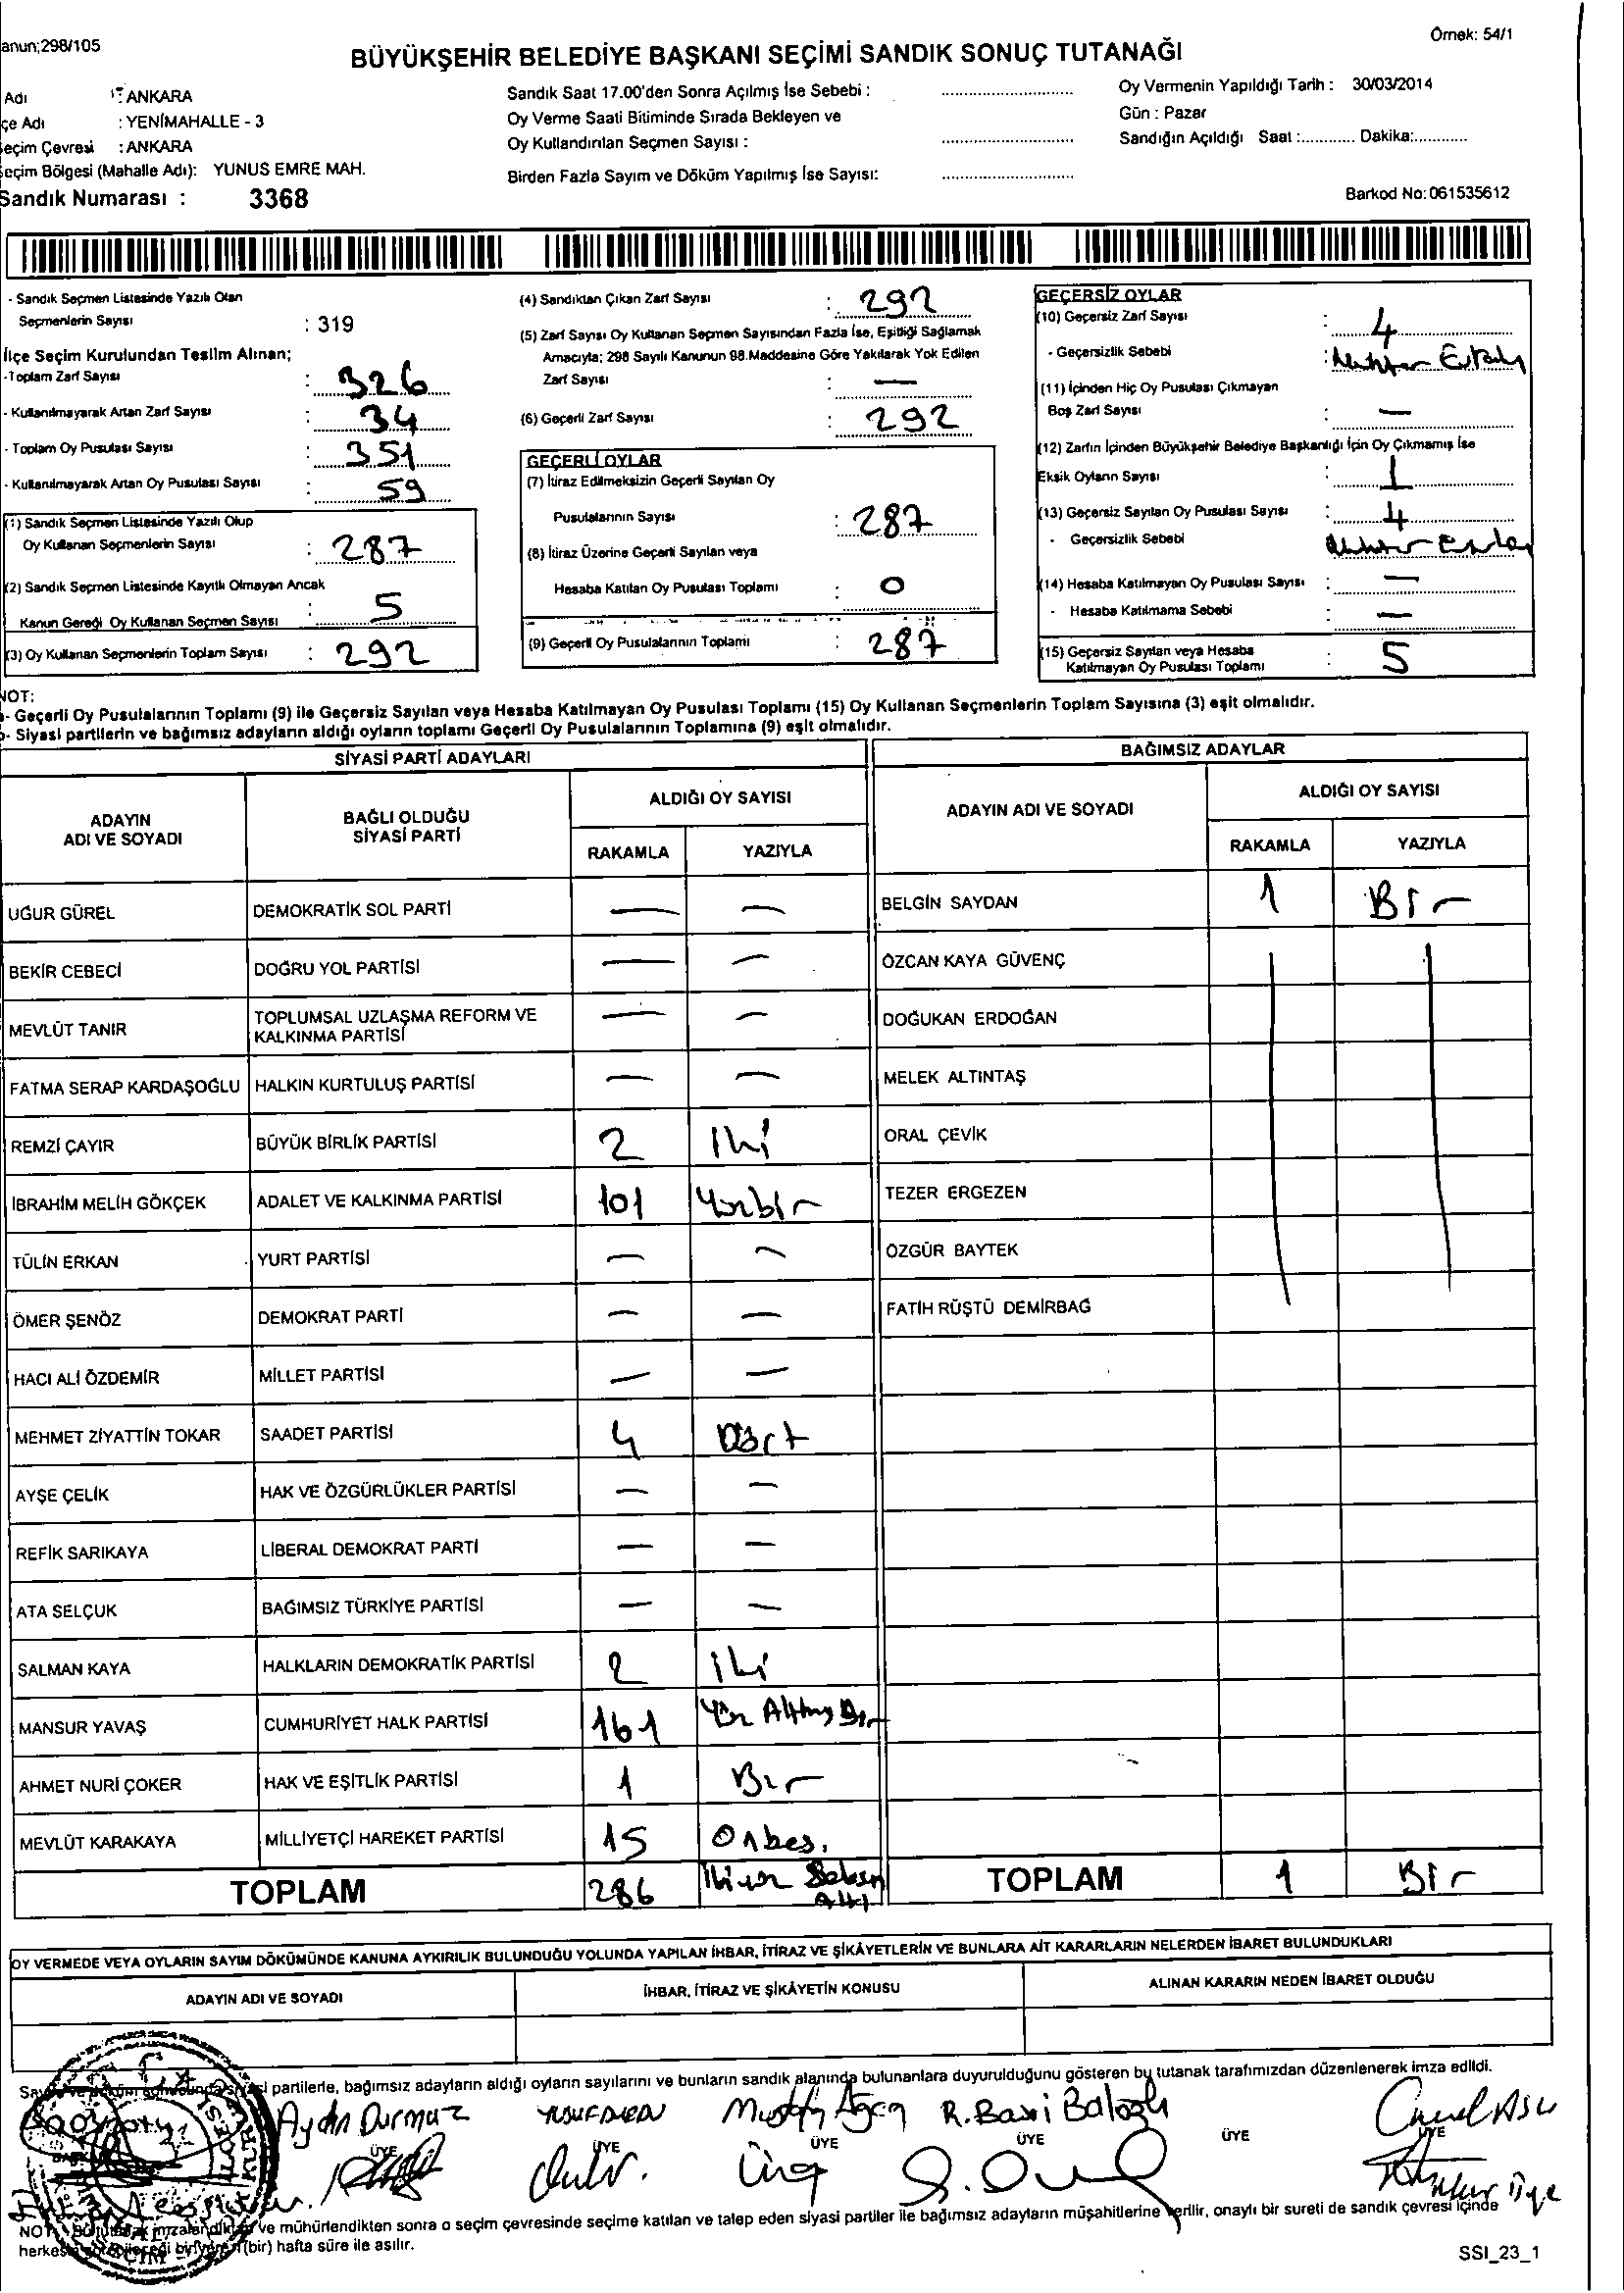 anun;298/105
Örnek: 54/1
BÜYÜKŞEHİR BELEDİYE BAŞKANI SEÇİMİ SANDIK SONUÇ TUTANAĞI
Adı : ANKARA
çe Adı : YENİMAHALLE - 3
eçim Çevresi : ANKARA
eçim Bölgesi (Mahalle Adı): YUNUS EMRE MAH.
Sandık Numarası : 3368
Sandık Saat 17.00'den Sonra Açılmış İse Sebebi :
Oy Verme Saati Bitiminde Sırada Bekleyen ve
Oy Kullandırılan Seçmen Sayısı :
Birden Fazla Sayım ve Döküm Yapılmış İse Sayısı:
Oy Vermenin Yapıldığı Tarih : 30/03/2014
Gün : Pazar
Sandığın Açıldığı Saat :............ Dakika:............
Barkod No: 061535612
- Sandık Seçmen Listesinde Yazılı Olan
Seçmenlerin Sayısı : 319
İlçe Seçim Kurulundan Teslim Alınan;
-Toplam Zarf Sayısı : 326
- Kullanılmayarak Artan Zarf Sayısı : 34
- Toplam Oy Pusulası Sayısı : 351
- Kullanılmayarak Artan Oy Pusulası Sayısı : 59
(1) Sandık Seçmen Listesinde Yazılı Olup
Oy Kullanan Seçmenlerin Sayısı : 287
(2) Sandık Seçmen Listesinde Kayıtlı Olmayan Ancak
Kanun Gereği Oy Kullanan Seçmen Sayısı : 5
(3) Oy Kullanan Seçmenlerin Toplam Sayısı : 292
(4) Sandıktan Çıkan Zarf Sayısı : 292
(5) Zarf Sayısı Oy Kullanan Seçmen Sayısından Fazla İse, Eşitliği Sağlamak
Amacıyla; 298 Sayılı Kanunun 98.Maddesine Göre Yakılarak Yok Edilen
Zarf Sayısı : —
(6) Geçerli Zarf Sayısı : 292
GEÇERLİ OYLAR
(7) İtiraz Edilmeksizin Geçerli Sayılan Oy
Pusulalarının Sayısı : 287
(8) İtiraz Üzerine Geçerli Sayılan veya
Hesaba Katılan Oy Pusulası Toplamı : 0
(9) Geçerli Oy Pusulalarının Toplamı : 287
GEÇERSİZ OYLAR
(10) Geçersiz Zarf Sayısı : 4
- Geçersizlik Sebebi :
(11) İçinden Hiç Oy Pusulası Çıkmayan
Boş Zarf Sayısı : —
(12) Zarfın İçinden Büyükşehir Belediye Başkanlığı İçin Oy Çıkmamış İse
Eksik Oyların Sayısı : 1
(13) Geçersiz Sayılan Oy Pusulası Sayısı : 4
- Geçersizlik Sebebi
(14) Hesaba Katılmayan Oy Pusulası Sayısı : —
- Hesaba Katılmama Sebebi : —
(15) Geçersiz Sayılan veya Hesaba
Katılmayan Oy Pusulası Toplamı : 5
NOT:
a- Geçerli Oy Pusulalarının Toplamı (9) ile Geçersiz Sayılan veya Hesaba Katılmayan Oy Pusulası Toplamı (15) Oy Kullanan Seçmenlerin Toplam Sayısına (3) eşit olmalıdır.
b- Siyasi partilerin ve bağımsız adayların aldığı oyların toplamı Geçerli Oy Pusulalarının Toplamına (9) eşit olmalıdır.
SİYASİ PARTİ ADAYLARI
ADAYIN
ADI VE SOYADI
BAĞLI OLDUĞU
SİYASİ PARTİ
ALDIĞI OY SAYISI
RAKAMLA YAZIYLA
UĞUR GÜREL DEMOKRATİK SOL PARTİ — —
BEKİR CEBECİ DOĞRU YOL PARTİSİ — —
MEVLÜT TANIR TOPLUMSAL UZLAŞMA REFORM VE
KALKINMA PARTİSİ — —
FATMA SERAP KARDAŞOĞLU HALKIN KURTULUŞ PARTİSİ — —
REMZİ ÇAYIR BÜYÜK BİRLİK PARTİSİ 2 İki
İBRAHİM MELİH GÖKÇEK ADALET VE KALKINMA PARTİSİ 101 Yüzbir
TÜLİN ERKAN YURT PARTİSİ — —
ÖMER ŞENÖZ DEMOKRAT PARTİ — —
HACI ALİ ÖZDEMİR MİLLET PARTİSİ — —
MEHMET ZİYATTİN TOKAR SAADET PARTİSİ 4 Dört
AYŞE ÇELİK HAK VE ÖZGÜRLÜKLER PARTİSİ — —
REFİK SARIKAYA LİBERAL DEMOKRAT PARTİ — —
ATA SELÇUK BAĞIMSIZ TÜRKİYE PARTİSİ — —
SALMAN KAYA HALKLARIN DEMOKRATİK PARTİSİ 2 iki
MANSUR YAVAŞ CUMHURİYET HALK PARTİSİ 161 Yüz Altmış Bir
AHMET NURİ ÇOKER HAK VE EŞİTLİK PARTİSİ 1 Bir
MEVLÜT KARAKAYA MİLLİYETÇİ HAREKET PARTİSİ 15 Onbeş.
TOPLAM 286 İkiyüz Seksen
Altı
BAĞIMSIZ ADAYLAR
ADAYIN ADI VE SOYADI
ALDIĞI OY SAYISI
RAKAMLA YAZIYLA
BELGİN SAYDAN 1 Bir
ÖZCAN KAYA GÜVENÇ
DOĞUKAN ERDOĞAN
MELEK ALTINTAŞ
ORAL ÇEVİK
TEZER ERGEZEN
ÖZGÜR BAYTEK
FATİH RÜŞTÜ DEMİRBAĞ
TOPLAM 1 Bir
OY VERMEDE VEYA OYLARIN SAYIM DÖKÜMÜNDE KANUNA AYKIRILIK BULUNDUĞU YOLUNDA YAPILAN İHBAR, İTİRAZ VE ŞİKÂYETLERİN VE BUNLARA AİT KARARLARIN NELERDEN İBARET BULUNDUKLARI
ADAYIN ADI VE SOYADI İHBAR, İTİRAZ VE ŞİKÂYETİN KONUSU ALINAN KARARIN NEDEN İBARET OLDUĞU
partilerle, bağımsız adayların aldığı oyların sayılarını ve bunların sandık alanında bulunanlara duyurulduğunu gösteren bu tutanak tarafımızdan düzenlenerek imza edildi.
Aydın Durmaz Mustafa R. Baxi
ÜYE ÜYE ÜYE ÜYE ÜYE ÜYE
NOT: ve mühürlendikten sonra o seçim çevresinde seçime katılan ve talep eden siyasi partiler ile bağımsız adayların müşahitlerine verilir, onaylı bir sureti de sandık çevresi içinde
(bir) hafta süre ile asılır.
SSI_23_1